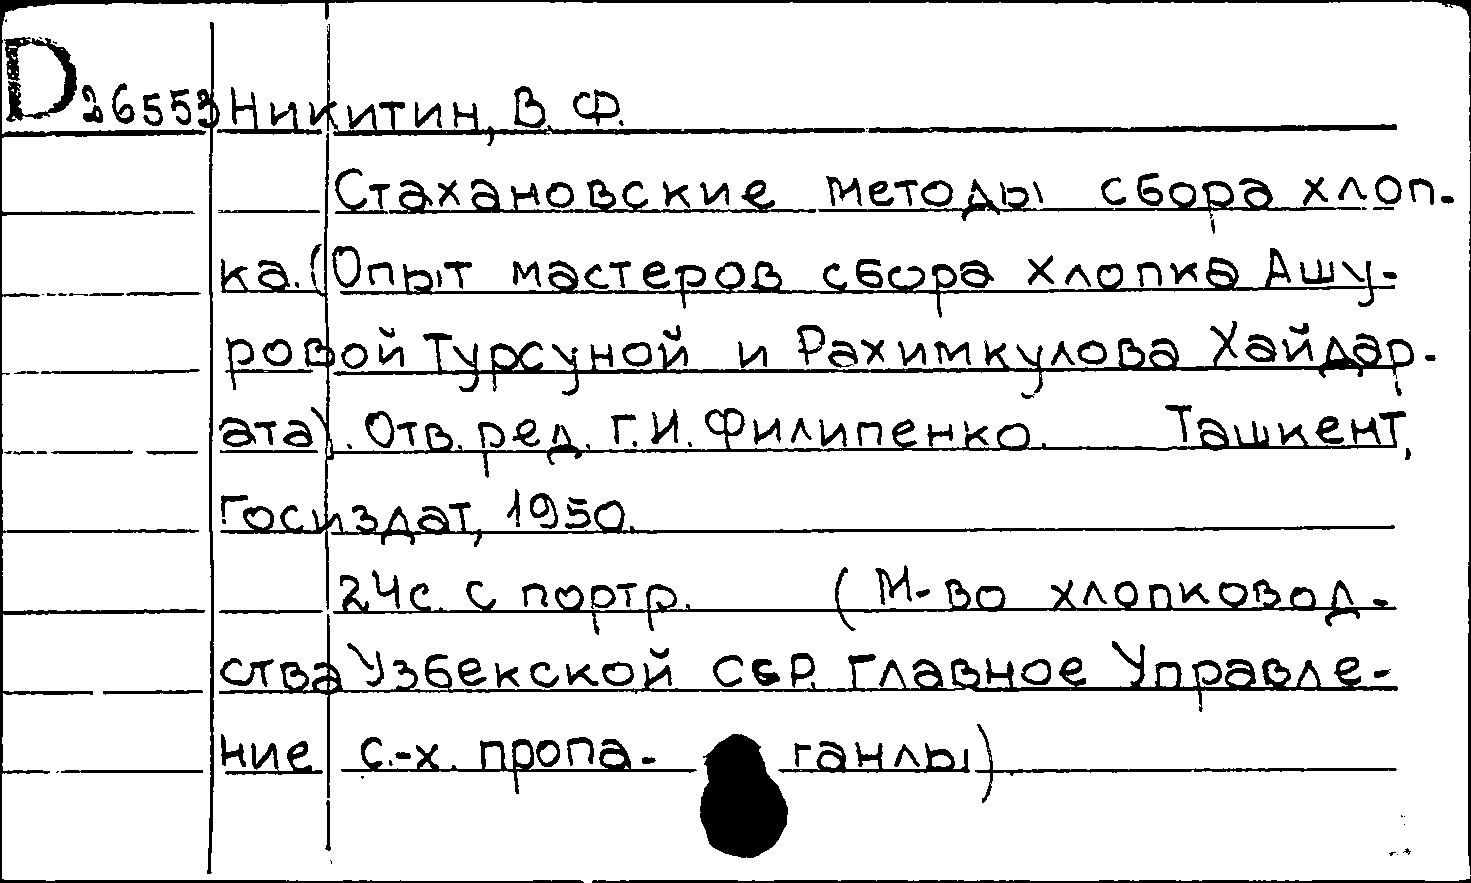 D 26553 Никитин, В. Ф.
Стахановские методы сбора хлоп-
ка. (Опыт мастеров сбора хлопка Ашу-
ровой Турсуной и Рахимкулова Хайдар-
ата). Отв. ред. Г. И. Филипенко. Ташкент,
Госиздат, 1950.
24с. с портр. (М-во хлопковод-
ства Узбекской ССР. Главное Управле-
ние с.-х. пропа- ганды)